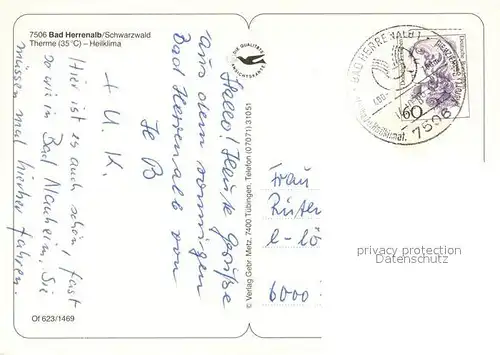 7506 Bad Herrenalb/Schwarzwald
Therme (35°C) – Heilklima
Hallo! Herzl. Grüße
aus dem sonnigen
Bad Herrenalb von
+ U. K.
Hier ist es auch schön, fast
so wie in Bad Nauheim, Sie
müssen mal hierher fahren.
Of 623/1469
DIE QUALITÄTS
© Verlag Gebr. Metz, 7400 Tübingen, Telefon (07071) 31051
BAD HERRENALB 1
7506
60
Frau
6000
privacy protection
Datenschutz